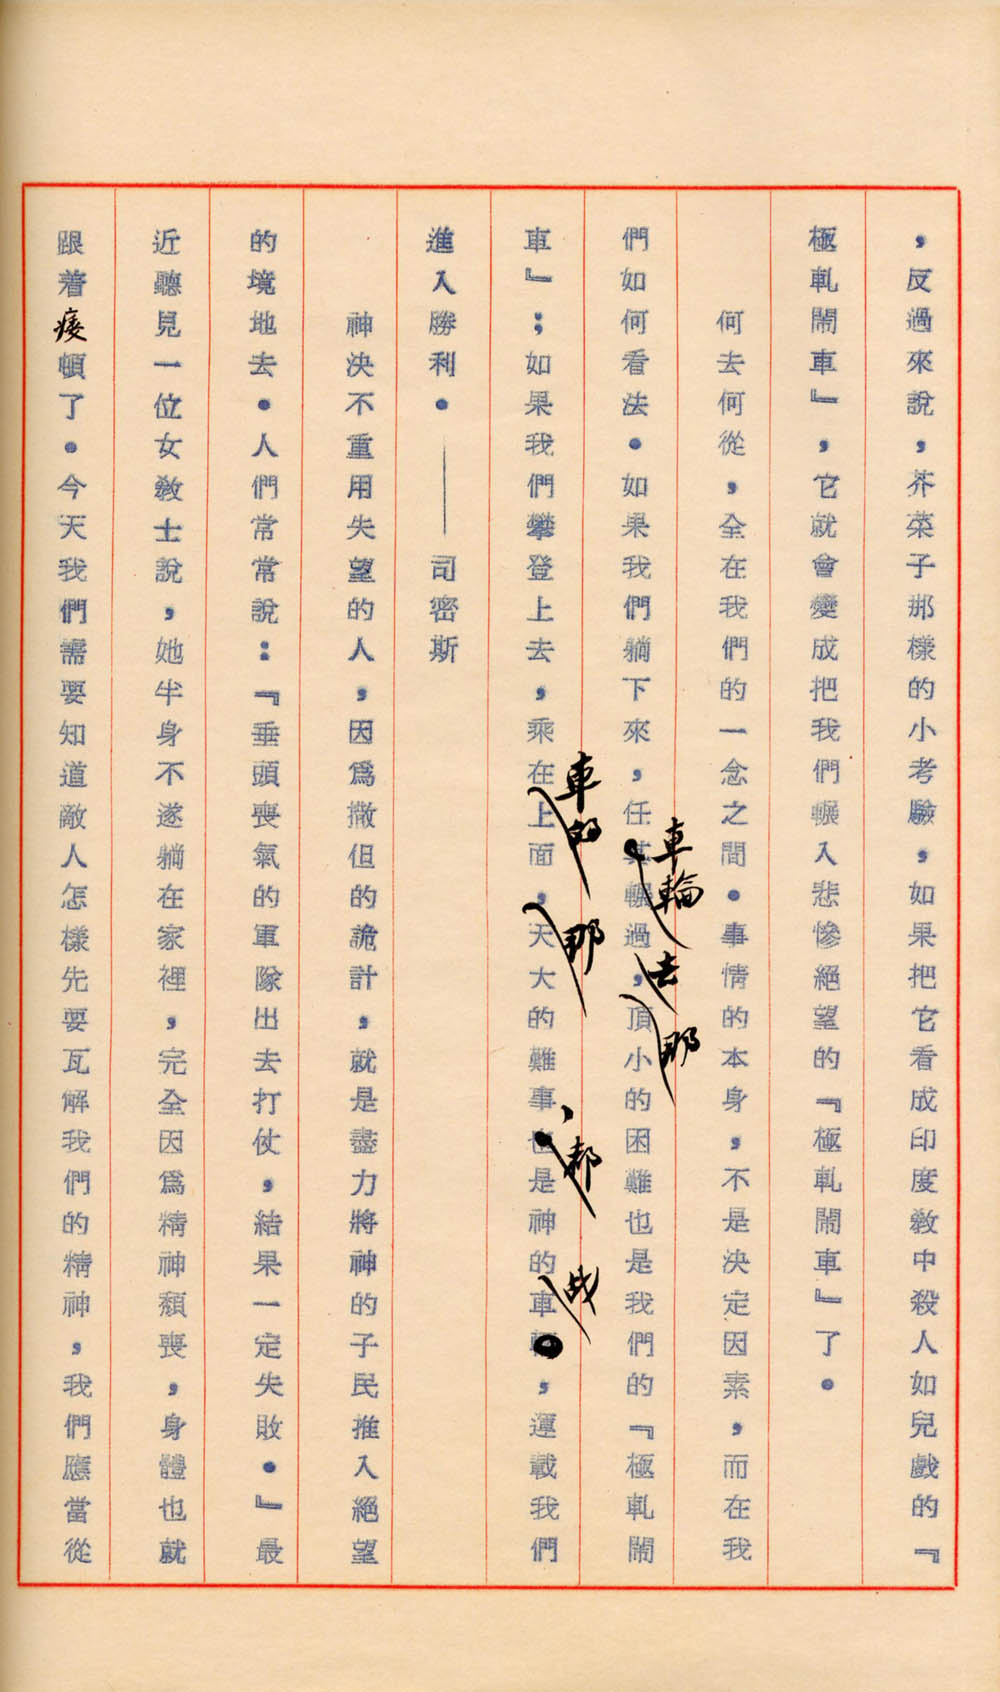 ，反過來說，芥菜子那樣的小考驗，如果把它看成印度敎中殺人如兒戲的『
極軋鬧車』，它就會變成把我們輾入悲慘絕望的『極軋鬧車』了。
何去何從，全在我們的一念之間。事情的本身，不是決定因素，而在我
車輪 去 那
們如何看法。如果我們躺下來，任其輾過，頂小的困難也是我們的『極軋鬧
車的 那 、都
車』；如果我們攀登上去，乘在上面，天大的難事也是神的車，運載我們
進入勝利。——司密斯
神決不重用失望的人，因爲撒但的詭計，就是盡力將神的子民推入絕望
的境地去。人們常常說：『垂頭喪氣的軍隊出去打仗，結果一定失敗。』最
近聽見一位女敎士說，她半身不遂躺在家裡，完全因爲精神頹喪，身體也就
跟着痿頓了。今天我們需要知道敵人怎樣先要瓦解我們的精神，我們應當從